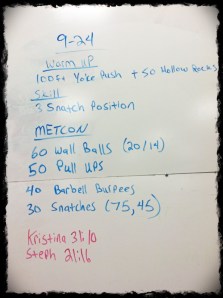 9-24
Warm up
100ft Yoke Push + 50 Hollow Rocks
Skill
3 Snatch Position
METCON
60 Wall Balls (20/14)
50 Pull ups
40 Barbell Burpees
30 Snatches (75,45)
Kristina 31:10
Steph 21:16